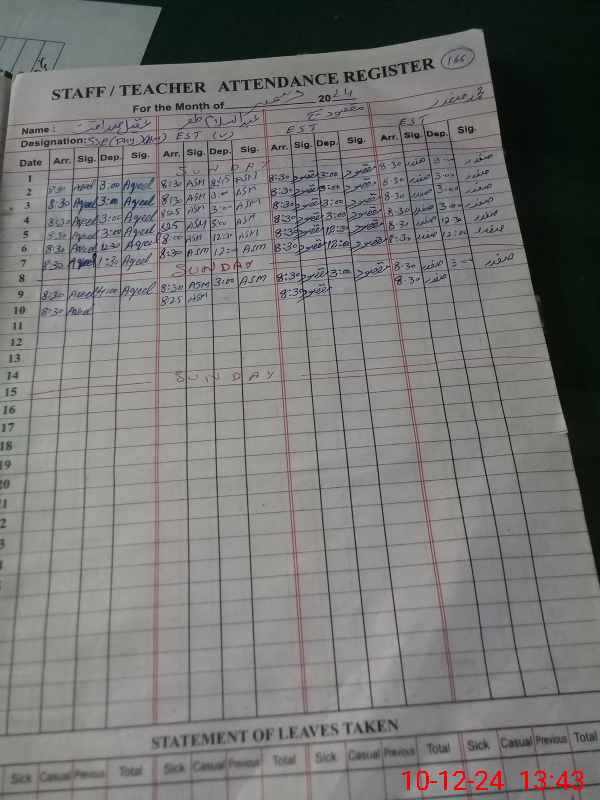 STAFF / TEACHER ATTENDANCE REGISTER 166
For the Month of دسمبر 2024
Name :
Designation: EST EST
Date Arr. Sig. Dep. Sig. Arr. Sig. Dep. Sig. Arr. Sig. Dep. Sig. Arr. Sig. Dep. Sig.
1 SUNDAY
2 8:30 Aqeel 3:00 Aqeel 8:30 ASM ASM 8:30 مقصود 3:00 مقصود 8:30 صفدر 3:00 صفدر
3 8:30 Aqeel 3:00 Aqeel 8:30 ASM 3:00 ASM 8:30 مقصود 3:00 مقصود 8:30 صفدر 3:00 صفدر
4 8:30 Aqeel 3:00 Aqeel 8:25 ASM 3:00 ASM 8:30 مقصود 3:00 مقصود 8:30 صفدر 3:00 صفدر
5 8:30 Aqeel 3:00 Aqeel 8:25 ASM 3:00 ASM 8:30 مقصود 3:00 مقصود 8:30 صفدر 3:00 صفدر
6 8:30 Aqeel 12:30 Aqeel 8:00 ASM 12:30 ASM 8:30 مقصود 12:30 مقصود 8:30 صفدر 12:30 صفدر
7 8:30 Aqeel 1:30 Aqeel 8:30 ASM 12:00 ASM 8:30 مقصود 12:00 مقصود 8:30 صفدر 12:00 صفدر
8 SUNDAY
9 8:30 Aqeel 4:00 Aqeel 8:30 ASM 3:00 ASM 8:30 مقصود 3:00 مقصود 8:30 صفدر 3:00 صفدر
10 8:30 Aqeel 8:25 ASM 8:30 مقصود 8:30 صفدر
11
12
13
14
15 SUNDAY
16
17
18
19
20
STATEMENT OF LEAVES TAKEN
Sick Casual Previous Total Sick Casual Previous Total Sick Casual Previous Total Sick Casual Previous Total
10-12-24 13:43